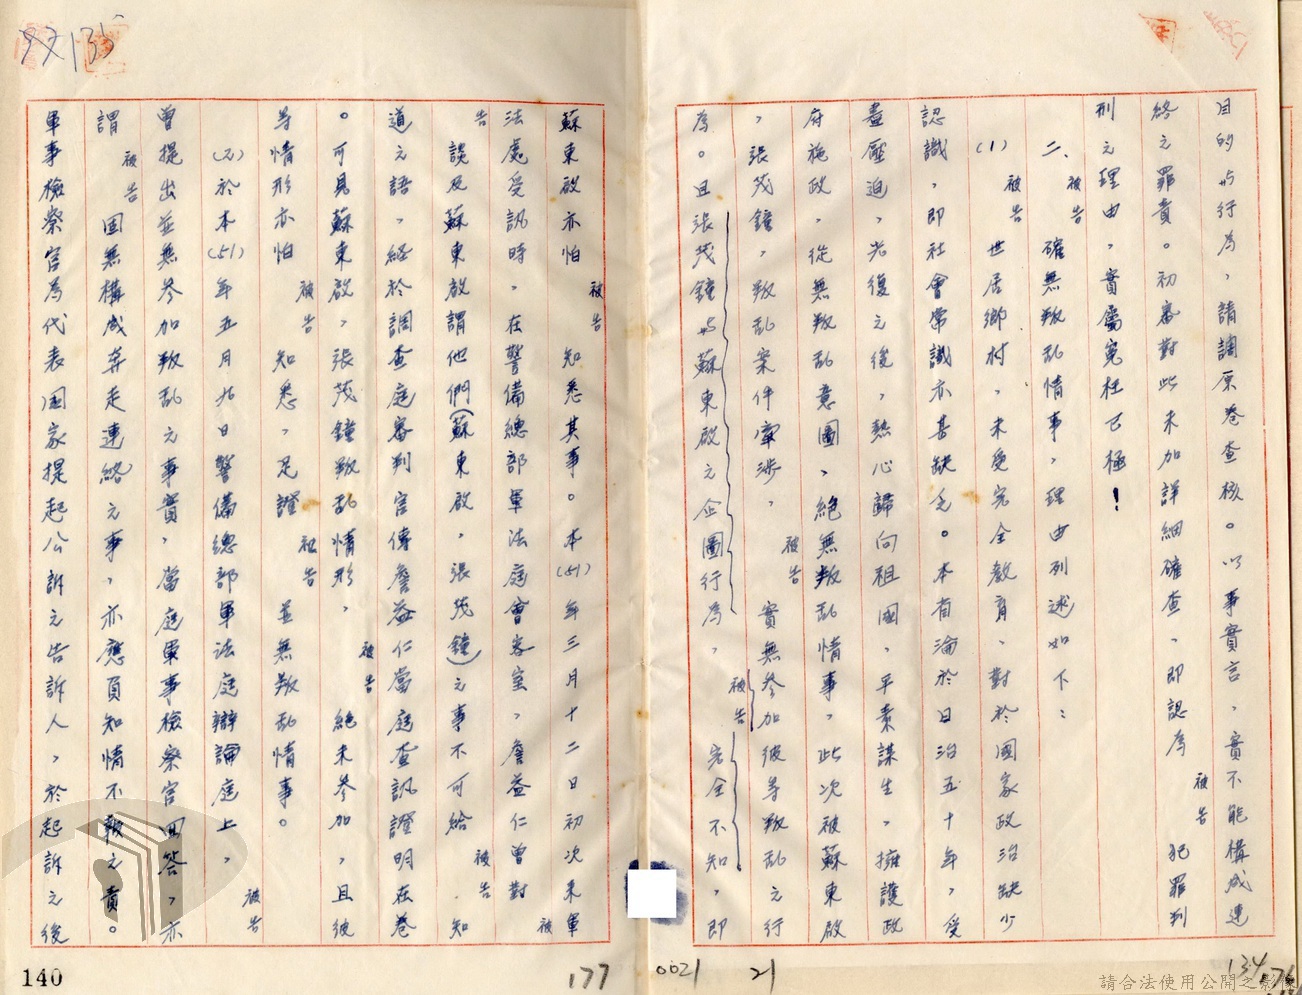 目的與行為，請調原卷查核。以事實言，實不能構成連
絡之罪責。初審對此未加詳細確查，即認為被告犯罪判
刑之理由，實屬冤枉已極！
二、被告確無叛乱情事，理由列述如下：
(1)被告世居鄉村，未受完全教育，對於國家政治缺少
認識，即社會常識亦甚缺乏。本省淪於日治五十年，受
盡壓迫，光復之後，熱心歸向祖國，平素謀生，擁護政
府施政，從無叛乱意圖，絕無叛乱情事，此次被蘇東啟
，張茂鐘，叛乱案件牽涉，被告實無參加彼等叛乱之行
為。且張茂鐘與蘇東啟之企圖行為，被告完全不知，即
蘇東啟亦怕被告知悉其事。本(51)年三月十二日初次來軍
法處受訊時，在警備總部軍法庭會客室，詹益仁曾對被
告談及蘇東啟謂他們(蘇東啟，張茂鐘)之事不可給被告知
道之語，経於調查庭審判官傳詹益仁當庭查訊證明在卷
。可見蘇東啟，張茂鐘叛乱情形，被告絕未參加，且彼
等情形亦怕被告知悉，足證被告並無叛乱情事。
(2)於本(51)年五月九日警備總部軍法庭辯論庭上，被告
曾提出並無參加叛乱之事實，當庭軍事檢察官回答，亦
謂被告固無構成奔走連絡之事，亦應負知情不報之責。
軍事檢察官為代表国家提起公訴之告訴人，於起訴之後
140
177
0021
21
134
176
135
請合法使用公開之影像